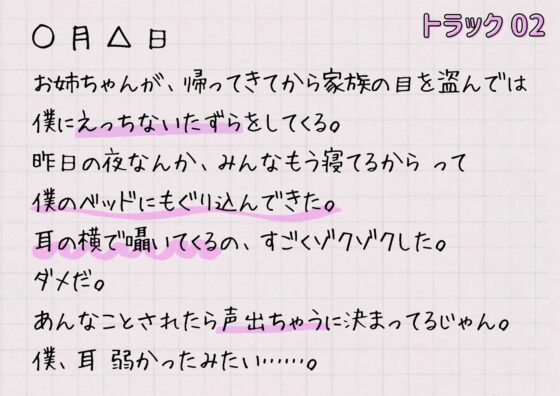 トラック 02
〇月△日
お姉ちゃんが、帰ってきてから家族の目を盗んでは
僕にえっちないたずらをしてくる。
昨日の夜なんか、みんなもう寝てるから って
僕のベッドにもぐり込んできた。
耳の横で囁いてくるの、すごくゾクゾクした。
ダメだ。
あんなことされたら声出ちゃうに決まってるじゃん。
僕、耳 弱かったみたい……。